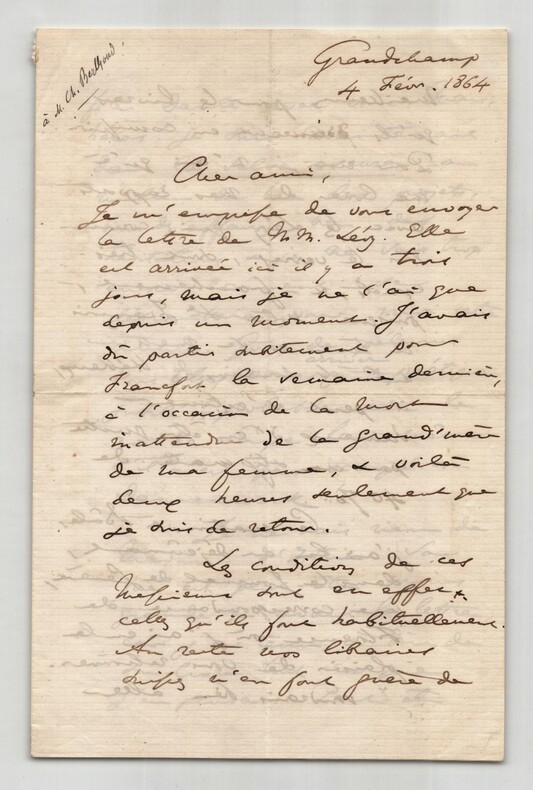 à M. Ch. Berthoud.
Grandchamp
4 Févr. 1864
Cher ami,
Je m'empresse de vous envoyer
la lettre de MM. Lévy. Elle
est arrivée ici il y a trois
jours, mais je ne l'ai que
depuis un moment. J'avais
dû partir subitement pour
Francfort la semaine dernière,
à l'occasion de la mort
inattendue de la grand'mère
de ma femme, & voilà
deux heures seulement que
je suis de retour.
Les conditions de ces
Messieurs sont en effet
celles qu'ils font habituellement.
Au reste nos libraires
suisses n'en font guère de